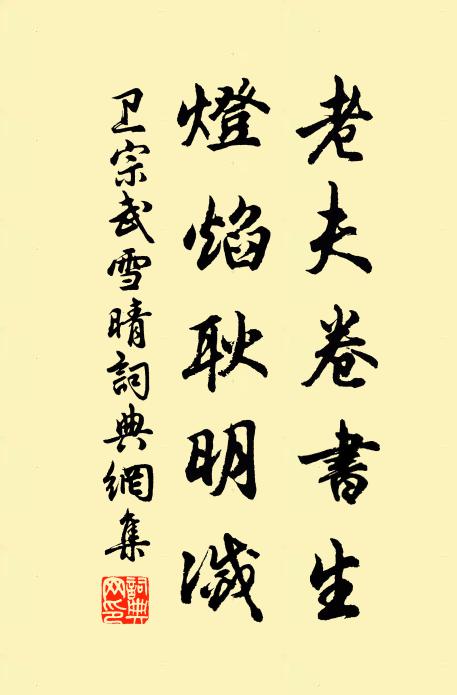 老夫卷書生
燈焰耿明滅
卫宗武雪晴詞典網集
詞典網印